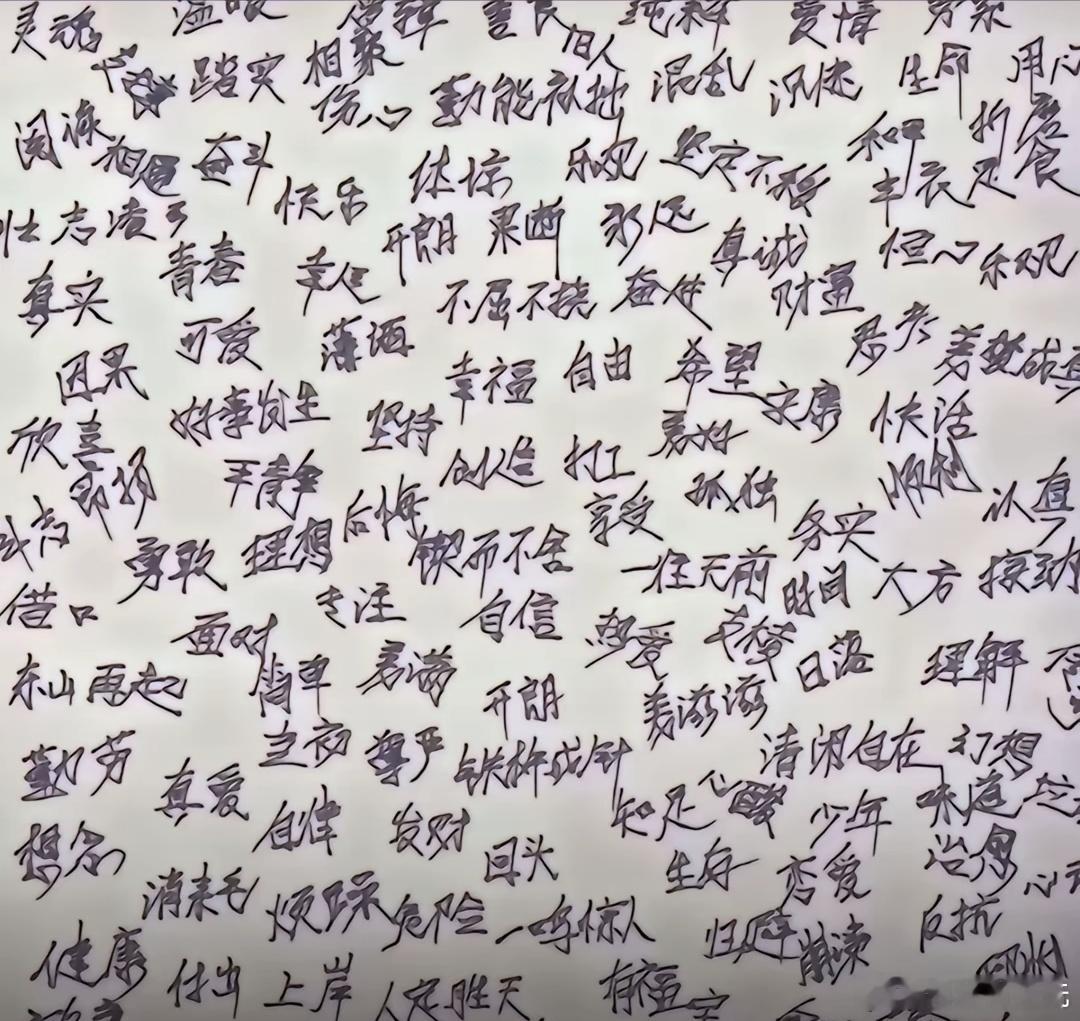 灵魂 温暖 善良 纯粹 爱情
踏实 相聚 旧人 混乱 沉迷 生命
伤心 勤能补拙
阅海 相遇 奋斗 体谅 乐观 坚定不移 和平 折磨
快乐 丰衣足食
壮志凌云 开朗 果断 永远 真诚 恒心 乐观
真实 青春 幸运 不屈不挠 奋进 财富
可爱 薄酒 思考 美梦成真
因果 幸福 自由 希望
好事发生 坚持 安康 快活
欣喜 美好
平静 创造 打工 孤独 顺利 认真
后悔 享受 务实
勇敢 理想 锲而不舍 一往无前 时间 大方
借口 专注 自信
面对 热爱 日落 理解
东山再起 简单 美满 开朗 美滋滋
勤劳 立初 尊严 铁杵成针 清闲自在 幻想
真爱 知足 心酸 少年 味道
想念 自律 发财 回头 生存 恋爱 治愈
消耗 烦躁 危险 一鸣惊人 归途 解读 反抗
健康 付出 上岸 人定胜天 有福